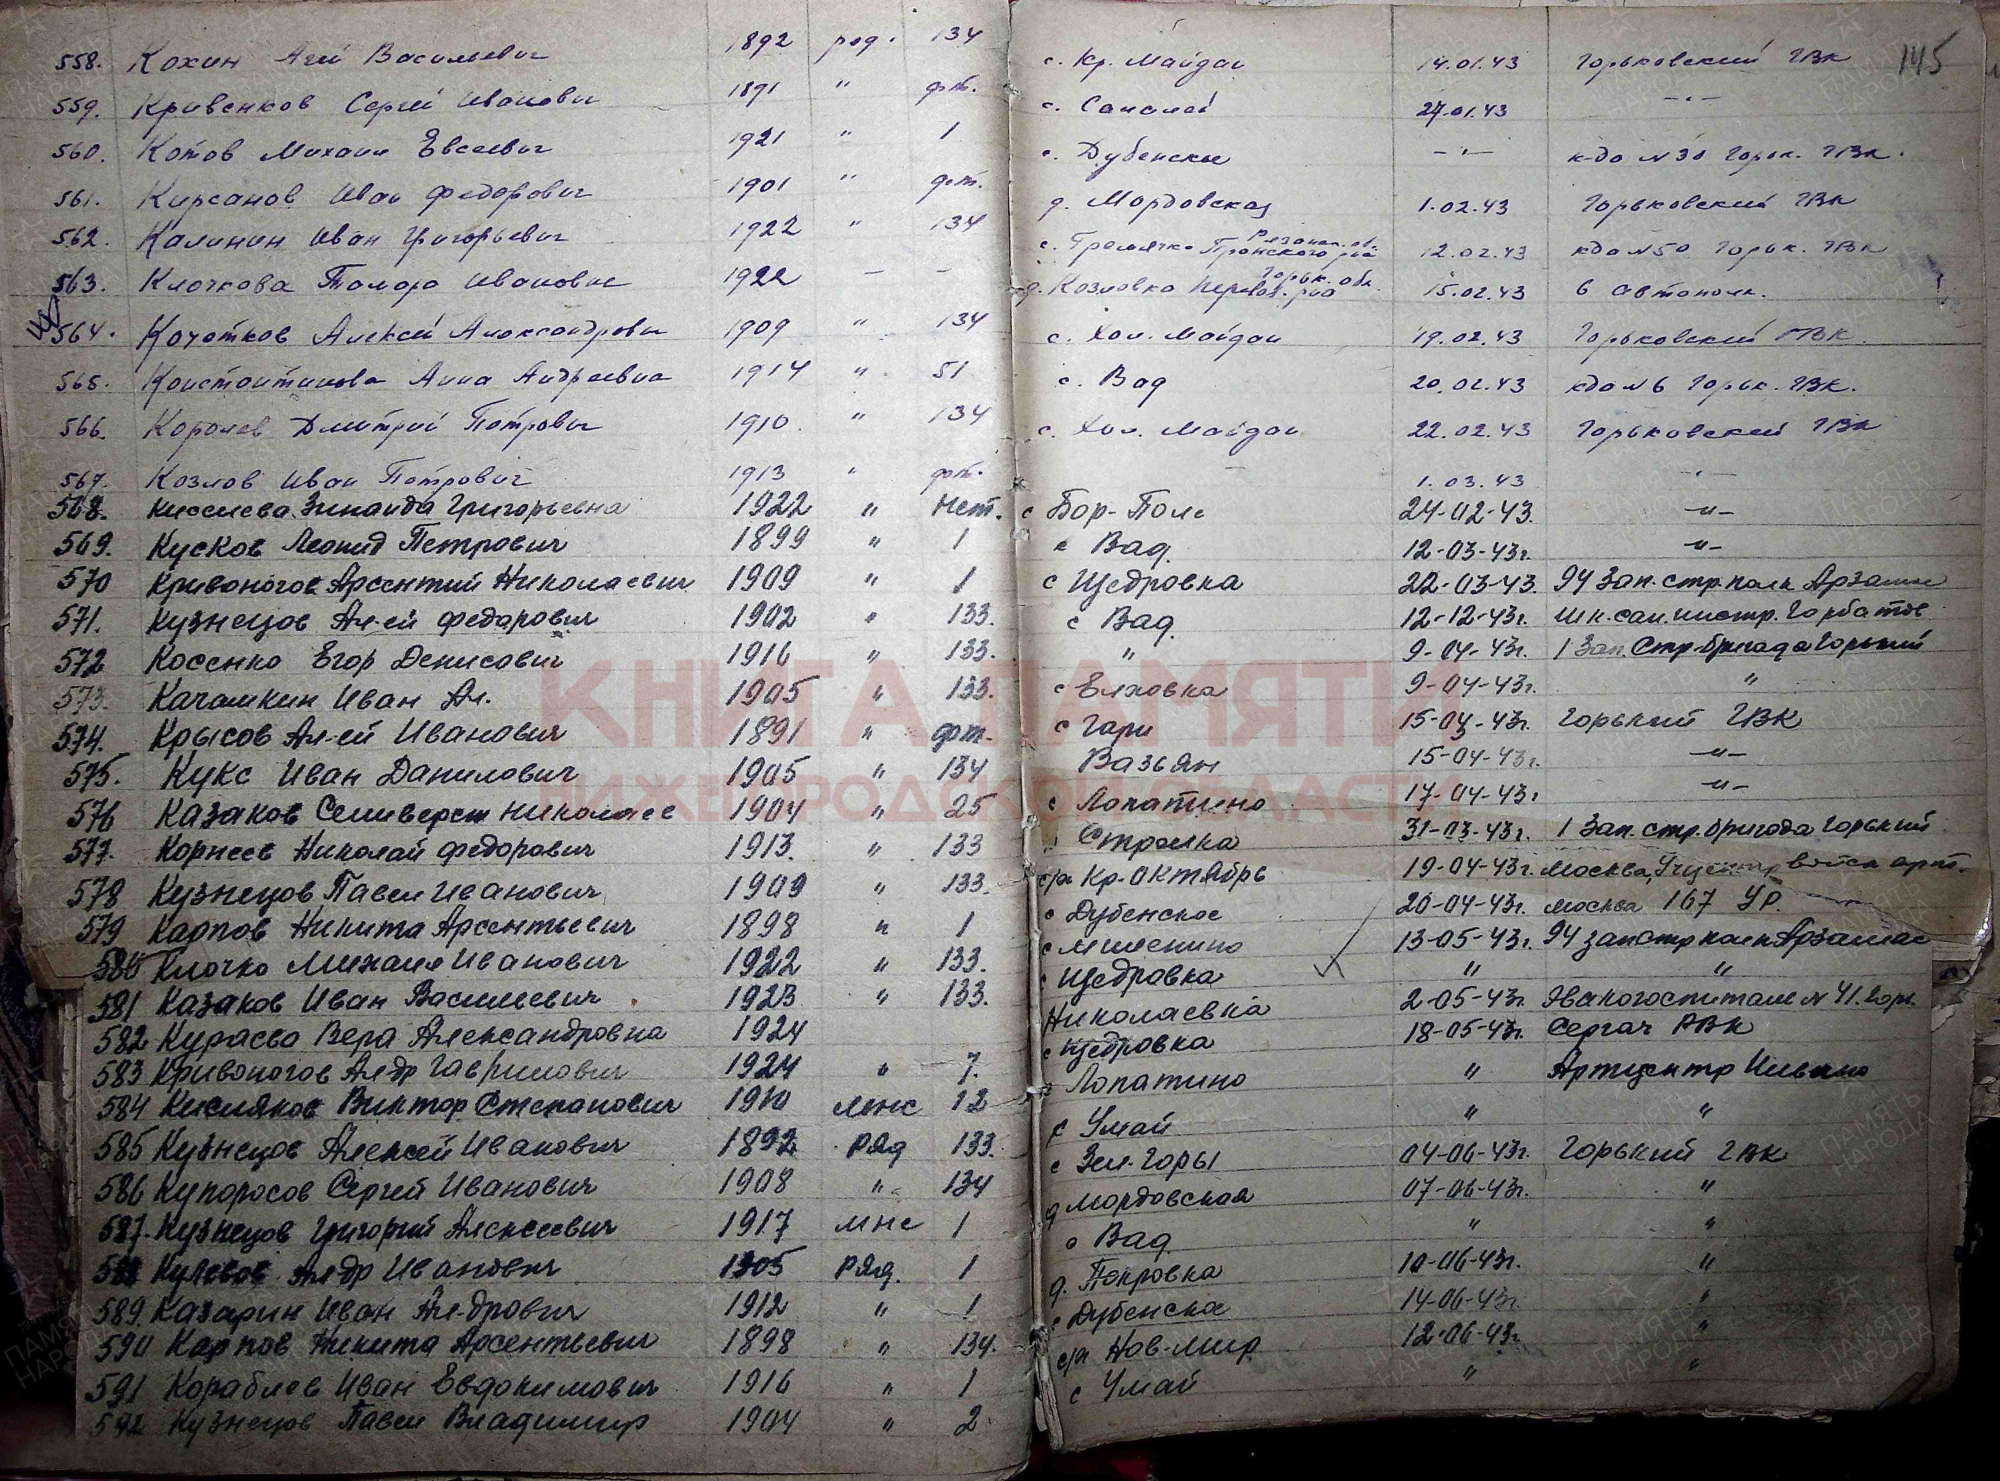 145
558. Кохин Ал-ей Васильевич 1892 ряд. 134 с. Кр. Майдан 14.01.43 Горьковский ГВК
559. Кривенков Сергей Иванович 1891 " ф.т. с. Саналей 27.01.43 —"—
560. Котов Михаил Евсеевич 1921 " 1 с. Дубенское —"— к-до №30 Горьк. ГВК.
561. Кирсанов Иван Федорович 1901 " ф.т. д. Мордовская 1.02.43 Горьковский ГВК
562. Калинин Иван Григорьевич 1922 " 134 с. Гремячка Пронского р-на Рязанск. об. 12.02.43 кдо №50 Горьк. ГВК
563. Клочкова Тамара Ивановна 1922 — — д. Козловка Перевоз. р-на Горьк. обл. 15.02.43 6 автополк.
564. Кочетков Алексей Александрович 1909 " 134 с. Хол. Майдан 19.02.43 Горьковский ГВК.
565. Константинова Анна Андреевна 1914 " 51 с. Вад 20.02.43 кдо №6 Горьк. ГВК.
566. Королев Дмитрий Петрович 1910 " 134 с. Хол. Майдан 22.02.43 Горьковский ГВК
567. Козлов Иван Петрович 1913 " ф.т. — 1.03.43 —"—
568. Киселева Зинаида Григорьевна 1922 " нет. с Бор-Поле 24-02-43. —"—
569. Кусков Леонид Петрович 1899 " 1 с Вад. 12-03-43г. —"—
570 Кривоногов Арсентий Николаевич 1909 " 1 с Щедровка 22-03-43. 94 Зап. стр. полк Арзамас
571. Кузнецов Ал-ей Федорович 1902 " 133. с Вад. 12-12-43г. шк. сан. инстр. Горбатов
572 Косенко Егор Денисович 1916 " 133. " 9-04-43г. 1 Зап. Стр. бригада Горький
573. Качалкин Иван Ал. 1905 " 133. с Елховка 9-04-43г. "
574. Крысов Ал-ей Иванович 1891 " фт. с Гари 15-04-43г. Горький ГВК
575. Кукс Иван Данилович 1905 " 134 Вазьян 15-04-43г. —"—
576 Казаков Селиверст Николаев 1904 " 25 с Лопатино 17-04-43г —"—
577. Корнеев Николай Федорович 1913. " 133 Стрелка 31-03-43г. 1 Зап. стр. бригада Горький
578 Кузнецов Павел Иванович 1909 " 133. с/х Кр. Октябрь 19-04-43г. Москва, войск арт.
579 Карпов Никита Арсентьевич 1898 " 1 с Дубенское 20-04-43г. Москва 167 УР.
580 Клочко Михаил Иванович 1922 " 133. с 13-05-43г. 94 зап стр полк Арзамас
581 Казаков Иван Васильевич 1923 " 133. с Щедровка " "
582 Кураева Вера Александровна 1924 Николаевка 2-05-43г. Эвакогоспиталь №41. Горьк.
583 Кривоногов Ал-др Гаврилович 1924 " 7. с Щедровка 18-05-43г. Сергач РВК
584 Кисляков Виктор Степанович 1910 мнс 12 с Лопатино " Артцентр
585 Кузнецов Алексей Иванович 1892 ряд 133. с Умай " "
586 Купоросов Сергей Иванович 1908 " 134 с Зел. Горы 04-06-43г. Горький ГВК
587. Кузнецов Григорий Алексеевич 1917 мнс 1 д Мордовская 07-06-43г. "
588 Ал-др Иванович 1905 ряд. 1 с Вад. " "
589. Казарин Иван Ал-дрович 1912 " 1 д. Покровка 10-06-43г. "
590 Карпов Никита Арсентьевич 1898 " 134. с Дубенское 14-06-43г "
591 Кораблев Иван Евдокимович 1916 " 1 с/х Нов-Мир 12-06-43г. "
592 Кузнецов Павел Владимир 1904 " 2 с Умай " "
КНИГА ПАМЯТИ
НИЖЕГОРОДСКОЙ ОБЛАСТИ
ПАМЯТЬ НАРОДА